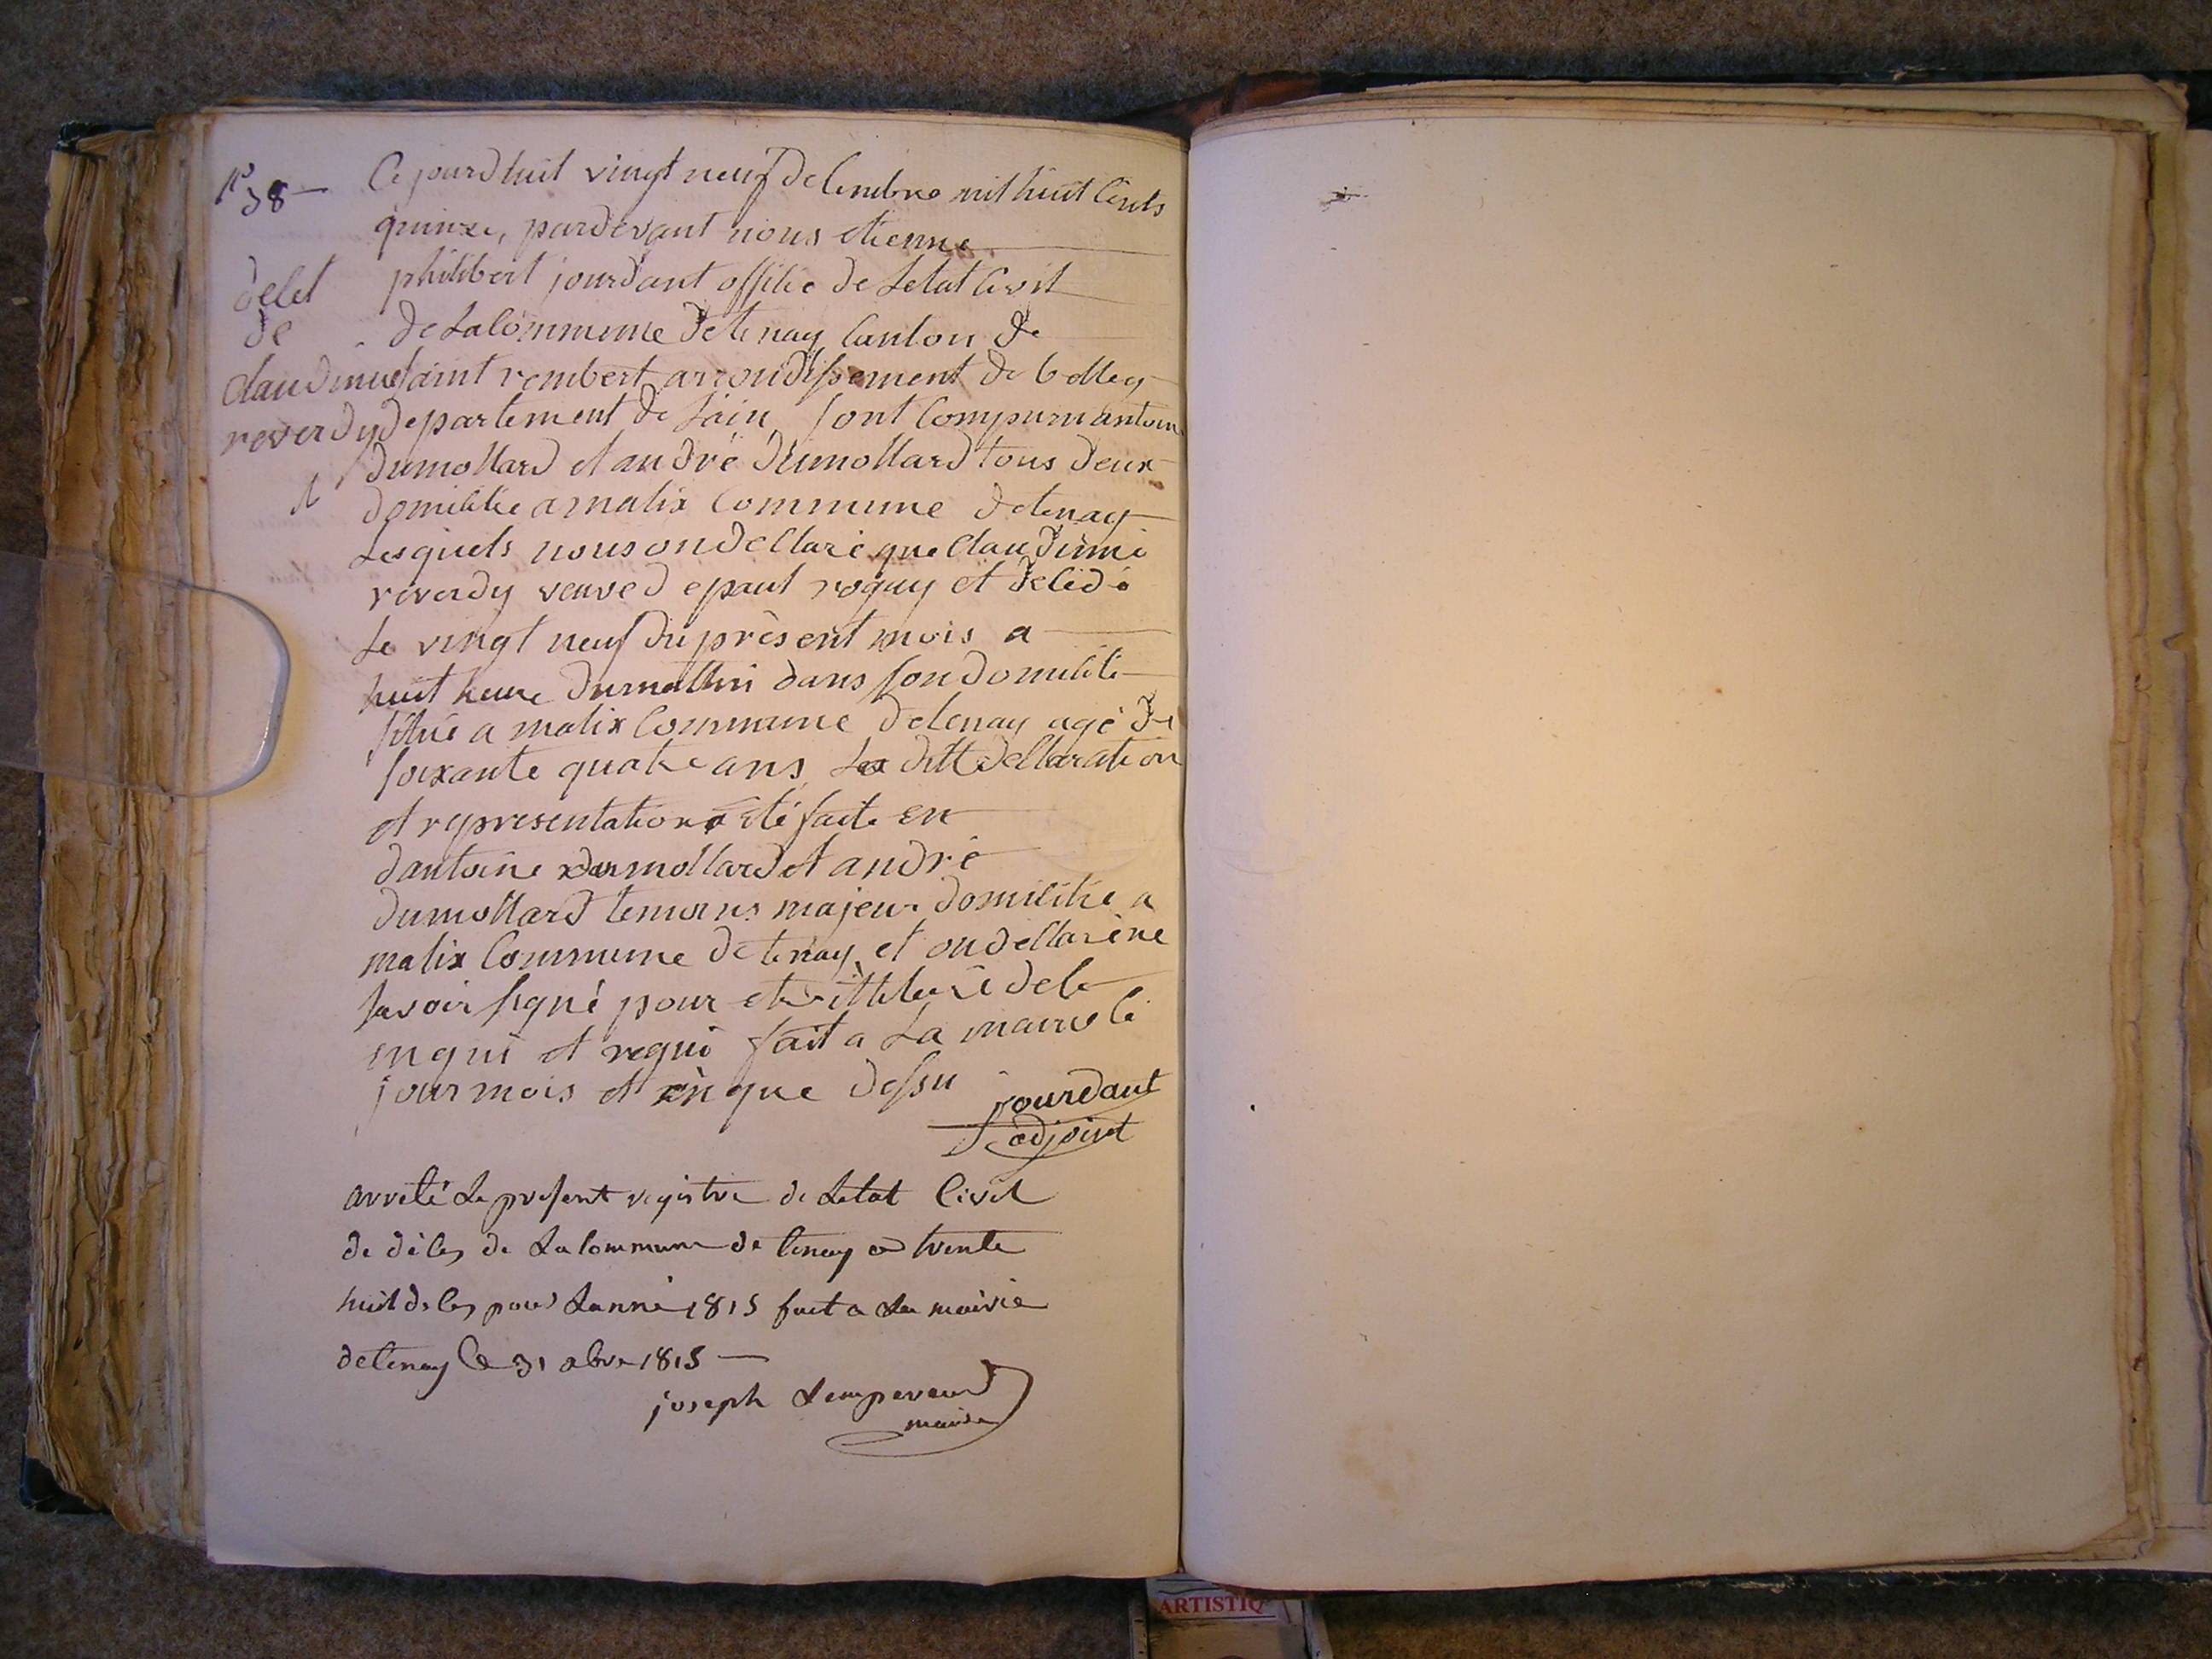 n° 38 —
delet
de
claudinne
reverdy
Ce jourdhuit vingt neuf delembre mil huit Cents
quinze, pardevant nous etienne
philibert jourdant offilie de Letat Civil
de La Commune de tenay Canton de
saint rembert arrondissement de belley
departement de Lain, sont Comparu antoin
dumollard et andré dumollard tous deux
domilitie a malix Commune de tenay
Lesquels nous on dellaré que Claudinne
reverdy veuve de paul roguy et delédé
Le vingt neuf du présent mois a
huit heure du mattin dans son domilile
situé a malix Commune de tenay agé de
soixante quatre ans, La ditte dellaration
et representation a été faite en
dantoine dumollard et andré
dumollard temoins majeur domilitie a
malix Commune de tenay, et on dellaré ne
savoir signé pour
enqui et requi fait a La mairie le
jour mois et an que dessu
jourdant
adjoint
arrelé Le present registre de Letat Civil
de dèles de La Commune de tenay a trente
huit deles pour Lanné 1815 fait a La mairie
de tenay Le 31 xbre 1815 —
joseph Lempereur
maire
ARTISTIQ